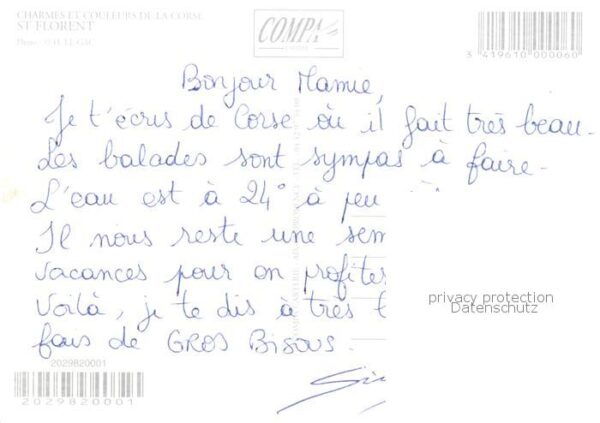 CHARMES ET COULEURS DE LA CORSE
ST FLORENT
COMPA
3 419610 000060
Bonjour Mamie,
Je t'écris de Corse où il fait très beau.
Les balades sont sympas à faire.
L'eau est à 24° à peu
Il nous reste une sem
vacances pour en profiter
Voilà, je te dis à très b
fais de GROS BISOUS.
privacy protection
Datenschutz
2029820001
2029820001